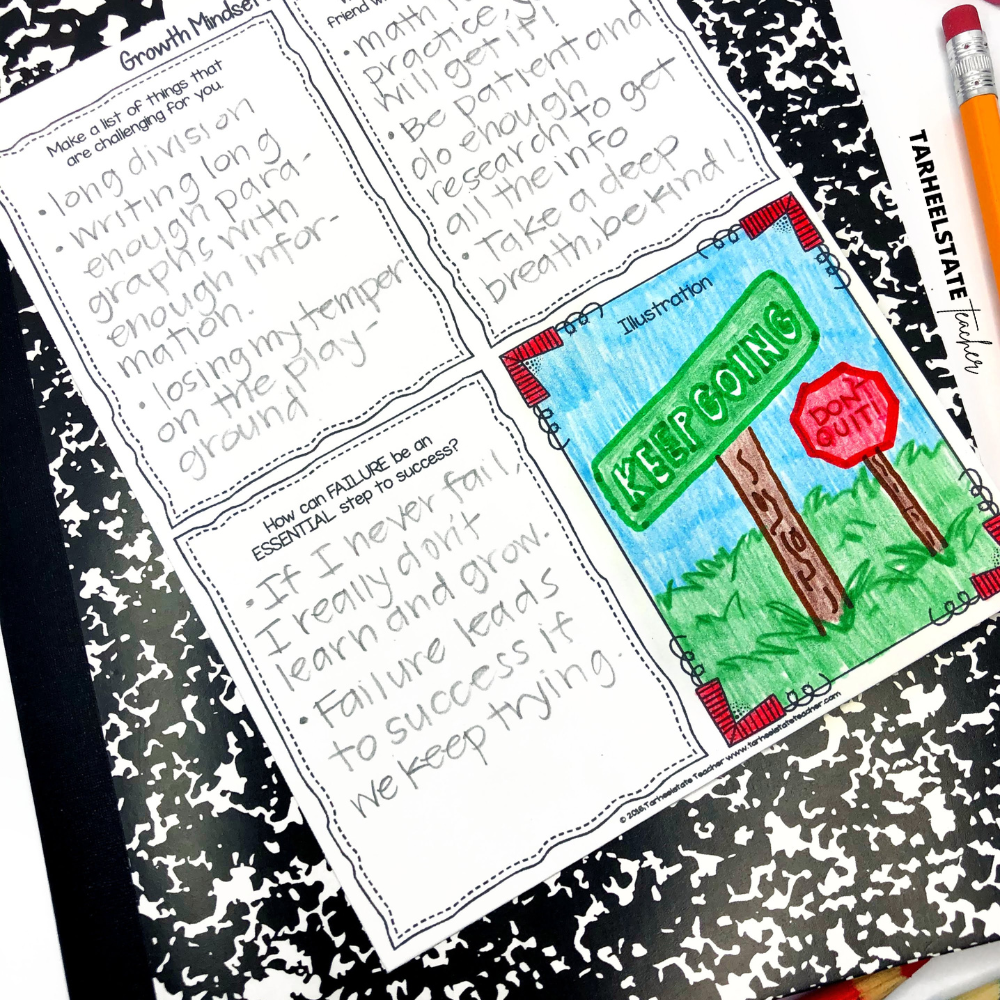 Growth Mindset
Make a list of things that
are challenging for you.
• long division
• writing long
enough para-
graphs with
enough infor-
mation.
• losing my temper
on the play
ground
friend
• math
practice,
will get it!
• Be patient and
do enough
research to get
all the info
• Take a deep
breath, be kind!
How can FAILURE be an
ESSENTIAL step to success?
• If I never fail,
I really don't
learn and grow.
• Failure leads
to success if
we keep trying.
Illustration
KEEP GOING
DON'T
QUIT!
© 2016, Tarheelstate Teacher www.tarheelstateteacher.com
TARHEELSTATE
teacher